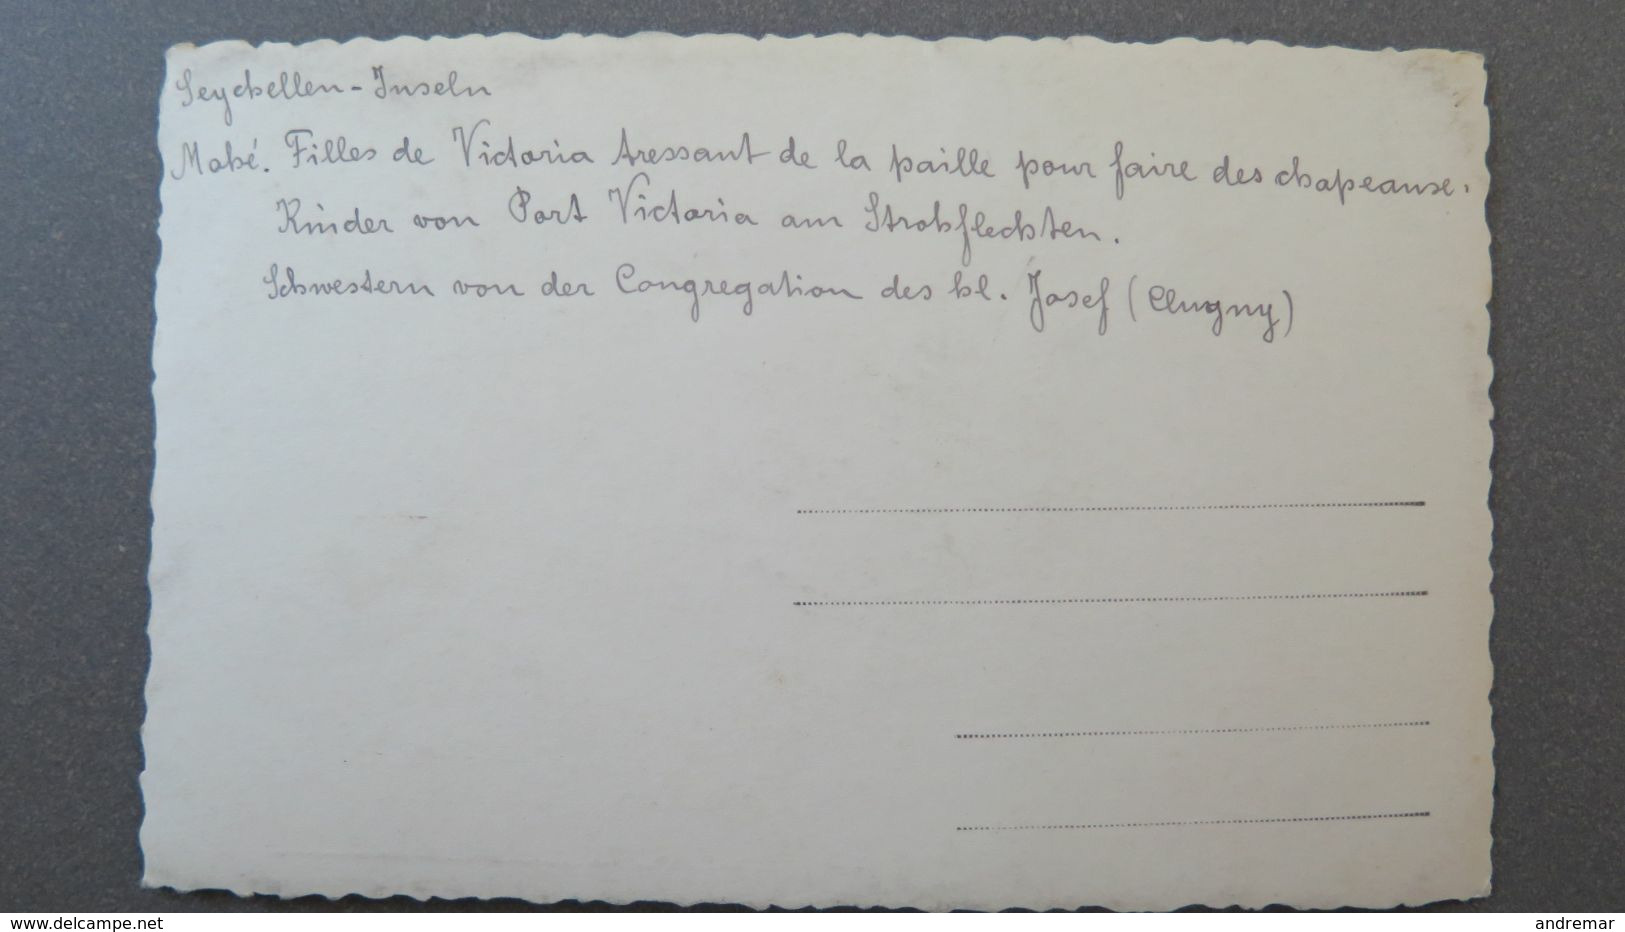 Seychellen-Inseln
Mahé. Filles de Victoria tressant de la paille pour faire des chapeause.
Kinder von Port Victoria am Strohflechten.
Schwestern von der Congregation des hl. Josef (Clugny)
www.delcampe.net
andremar